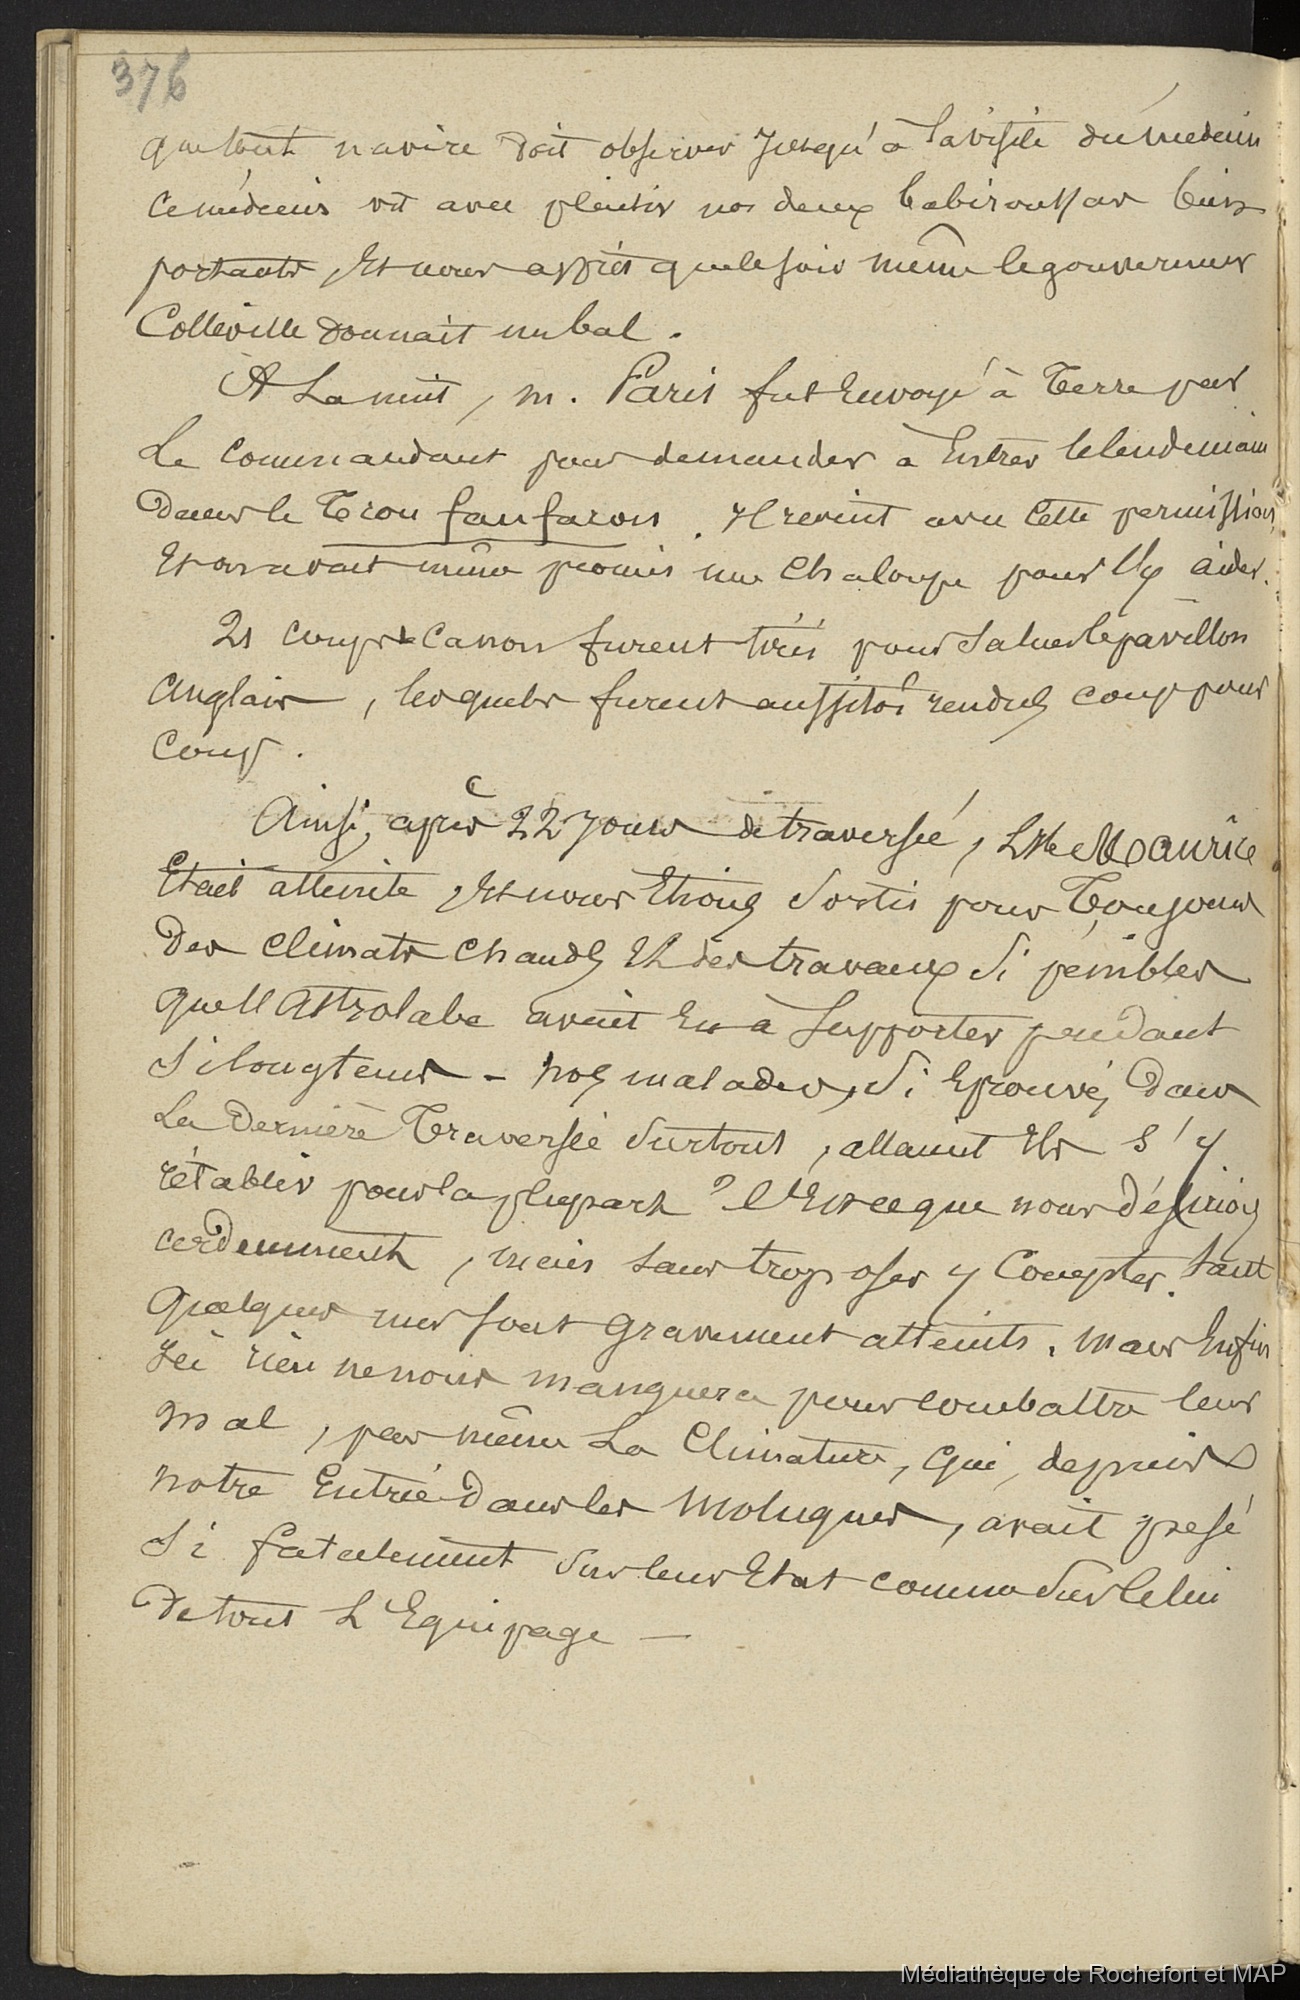 376
que tout navire doit observer jusqu'à la visite du médecin
ce médecin vit avec plaisir nos deux babiroussas bien
portants, et nous apprit que le soir même le gouverneur
Colleville donnait un bal.
A La nuit, m. Paris fut Envoyé à Terre par
Le Commandant pour demander à Entrer le lendemain
Dans le Trou fanfaron. Il revint avec Cette permission,
Et on avait même promis une Chaloupe pour l'y aider.
21 coups de Canon furent tirés pour Saluer le pavillon
Anglais, lesquels furent aussitôt rendus coup pour
Coup.
Ainsi, après 22 jours de traversée, L'Ile Maurice
Etait atteinte, Et nous Etions Sortis pour Toujours
Des Climats Chauds Et des travaux Si pénibles
que l'Astrolabe avait Eu à Supporter pendant
Si longtems - nos malades, Si Eprouvés, Dans
La Dernière Traversée Surtout, allaient Ils s'y
rétablir pour la plupart ? C'Est ce que nous désirions
ardemment, mais sans trop oser y Compter. tant
quelques uns sont gravement atteints. mais Enfin
Ici rien ne nous manquera pour combattre leur
mal, pas même La Climature, qui, depuis
notre Entrée Dans les Moluques, avait pesé
Si fatalement Sur leur Etat comme Sur Celui
De tout L'Equipage —
Médiathèque de Rochefort et MAP